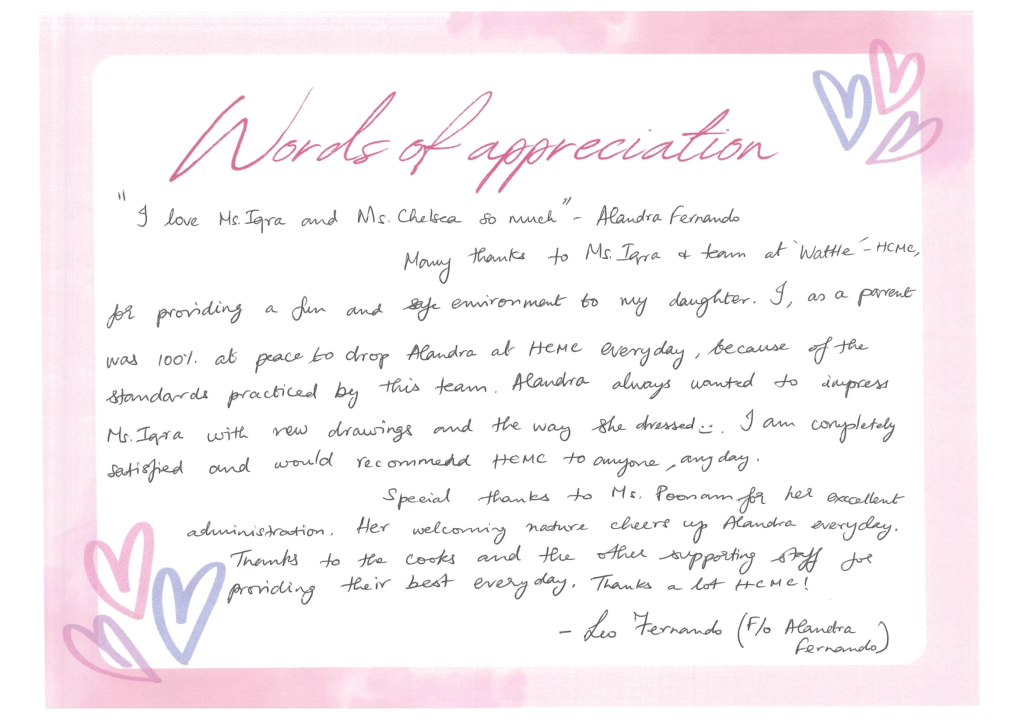 Words of appreciation
"I love Ms. Iqra and Ms. Chelsea so much" - Alandra Fernando
Many thanks to Ms. Iqra & team at 'Wattle' - HCMC,
for providing a fun and safe environment to my daughter. I, as a parent
was 100% at peace to drop Alandra at HCMC everyday, because of the
standards practiced by this team. Alandra always wanted to impress
Ms. Iqra with new drawings and the way she dressed :-. I am completely
satisfied and would recommend HCMC to anyone, any day.
Special thanks to Ms. Poonam for her excellent
administration. Her welcoming nature cheers up Alandra everyday.
Thanks to the cooks and the other supporting staff for
providing their best everyday. Thanks a lot HCMC!
- Leo Fernando (F/o Alandra
Fernando)